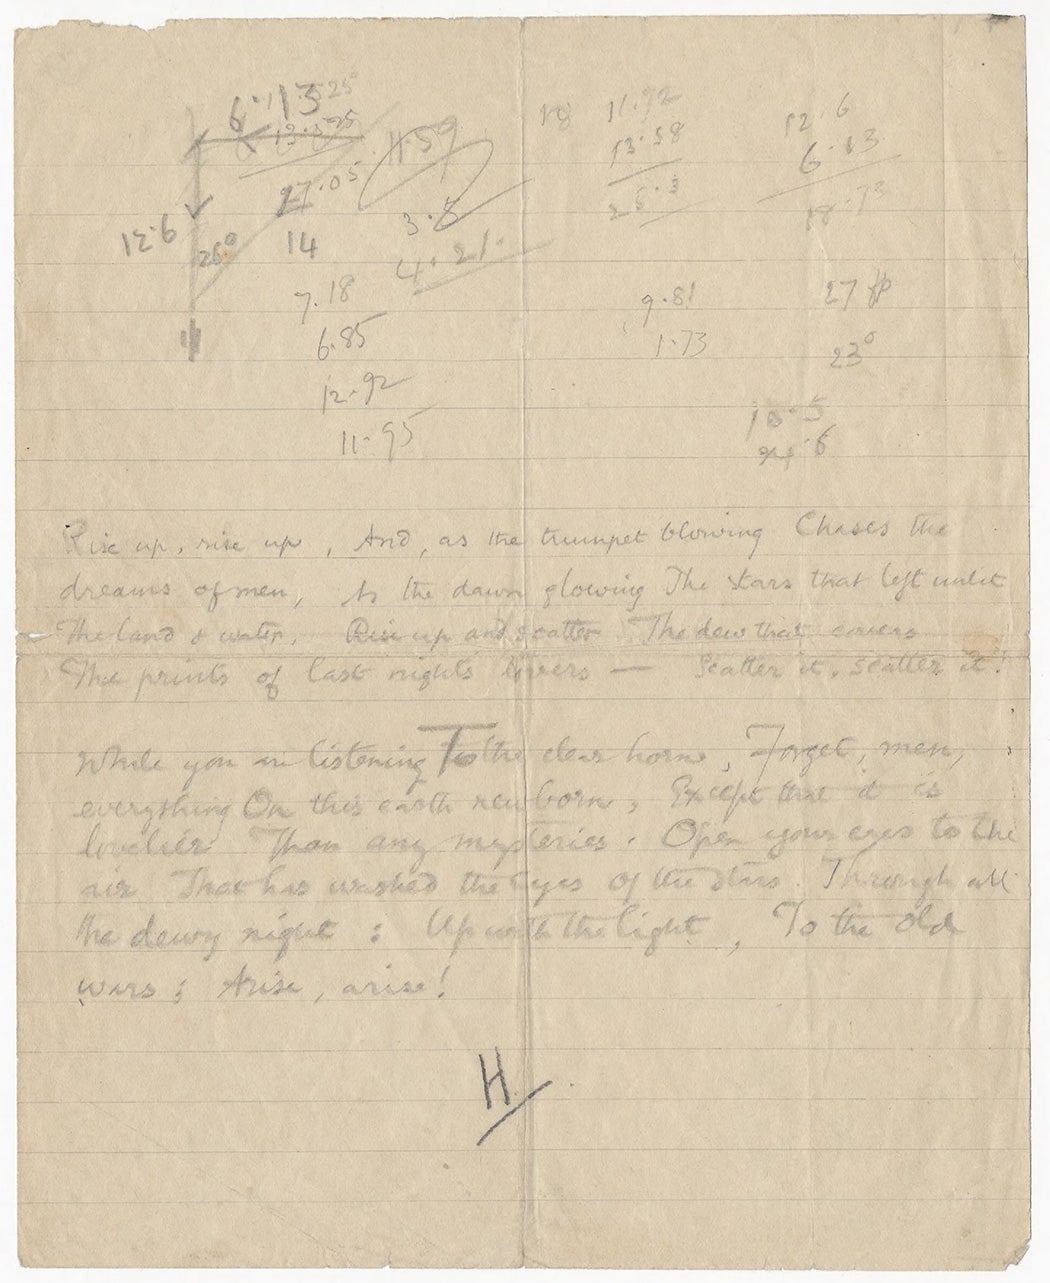 6.13
25
13.525
11.59
27.05
14
12.6
26°
3.5
4.21
7.18
6.85
12.92
11.95
18
11.92
13.58
25.3
12.6
6.13
18.73
9.81
1.73
27
23°
10.5
.6
Rise up, rise up, And, as the trumpet blowing Chases the
dreams of men, As the dawn glowing The stars that left unlit
The land & water, Rise up and scatter The dew that covers
The prints of last nights lovers — Scatter it, scatter it!
While you are listening To the clear horn, Forget, men,
everything On this earth newborn, Except that it is
lovelier Than any mysteries. Open your eyes to the
air That has washed the eyes of the stars Through all
the dewy night: Up with the light, To the old
wars; Arise, arise!
H